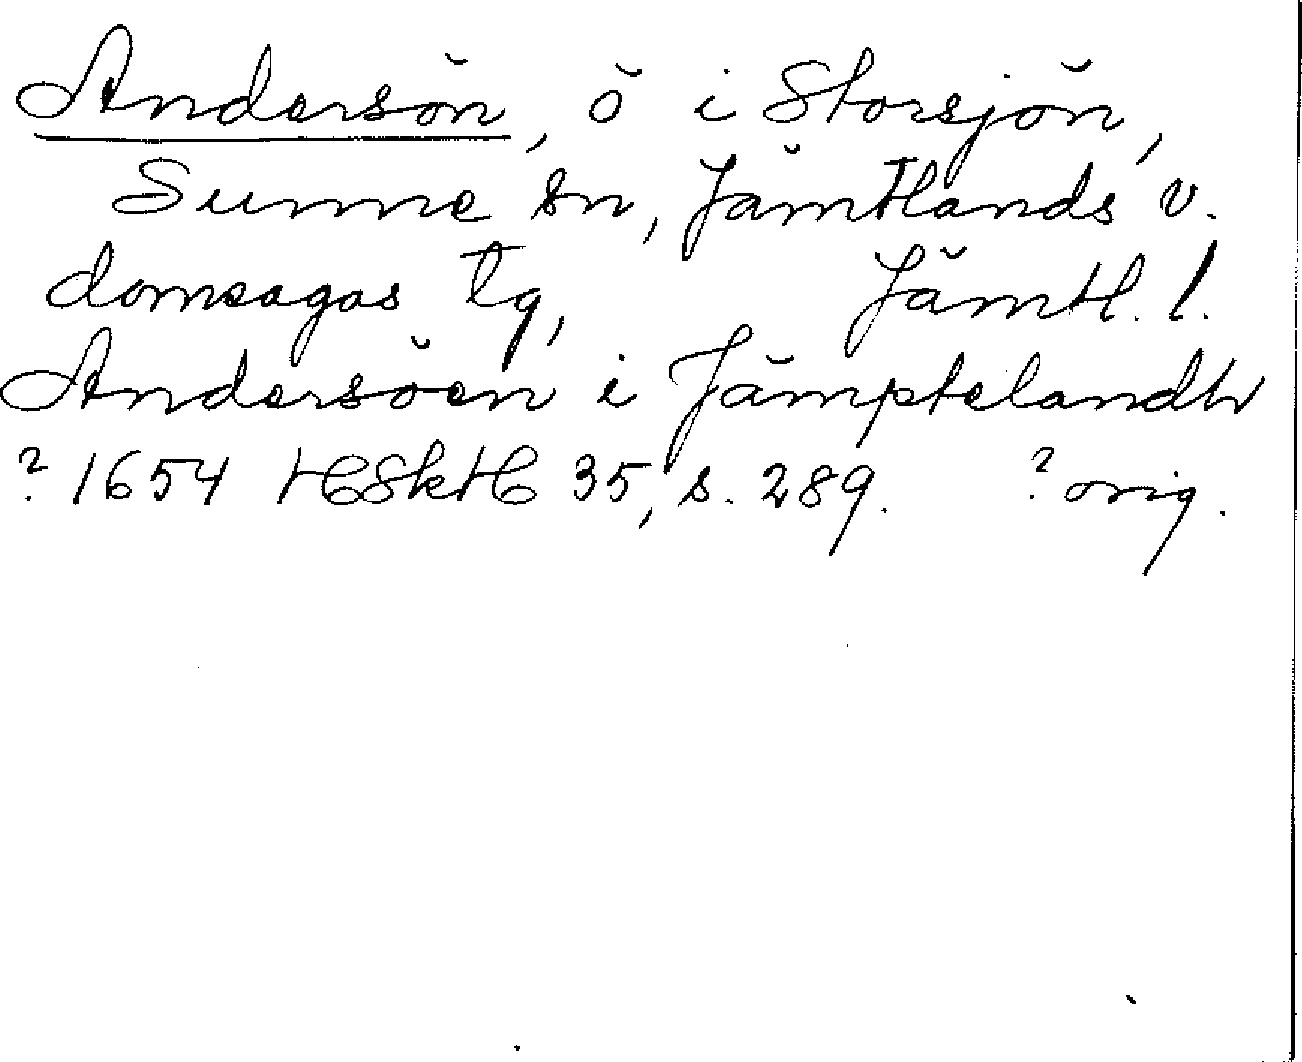 Andersön, ö i Storsjön,
Sunne sn, Jämtlands v.
domsagas tg, Jämtl. l.
Andersöen i Jämptelandh
? 1654 HSkH 35, s. 289. ? orig.